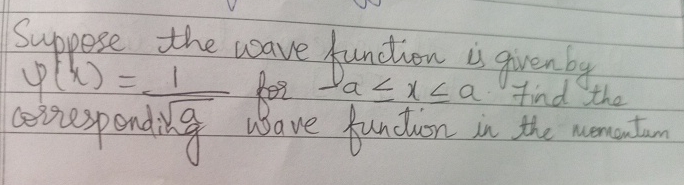 Suppose the wave function is given by
φ(x) = 1/√a for -a ≤ x ≤ a. Find the
corresponding wave function in the momentum